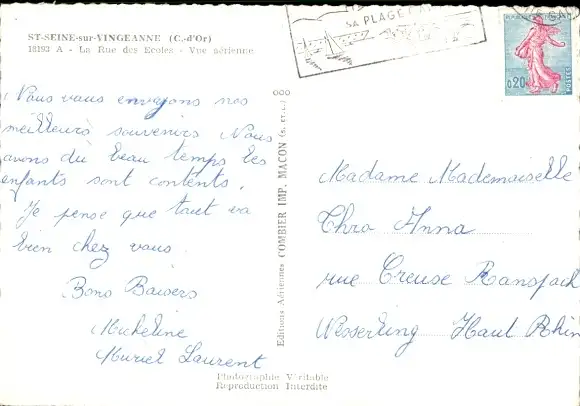 ST-SEINE-sur-VINGEANNE (C.-d'Or)
18193 A - La Rue des Ecoles - Vue aérienne
SA PLAGE
0,20
POSTES
Nous vous envoyons nos
meilleurs souvenirs Nous
avons du beau temps les
enfants sont contents.
Je pense que tout va
bien chez vous.
Bons Baisers
Micheline
Muriel Laurent
Editions Aériennes COMBIER IMP. MACON
Madame Mademoiselle
Thro Anna
rue Creuse Ranspach
Wesserling Haut Rhin
Photographie Véritable
Reproduction Interdite